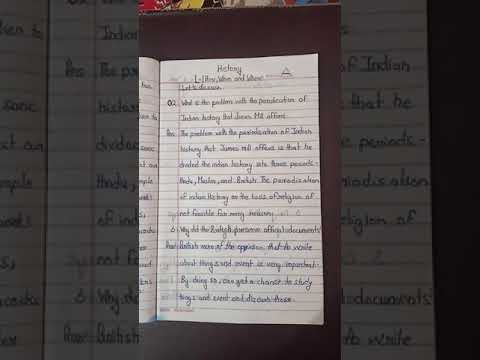 History
L-1 How, When and Where
Let's discuss
Q2. What is the problem with the periodisation of
Indian history that James Mill offers.
Ans The problem with the periodisation of Indian
history that James mill offers is that he
divided the indian history into three periods-
Hindu, Muslim, and British. The periodisation
of indian history on the basis of religion of
not feasible for many reasons
3 Why did the British preserve official documents
British were of the opinion that to write
about things and event is very important.
By doing so, one get a chance to study
things and event and discuss those.